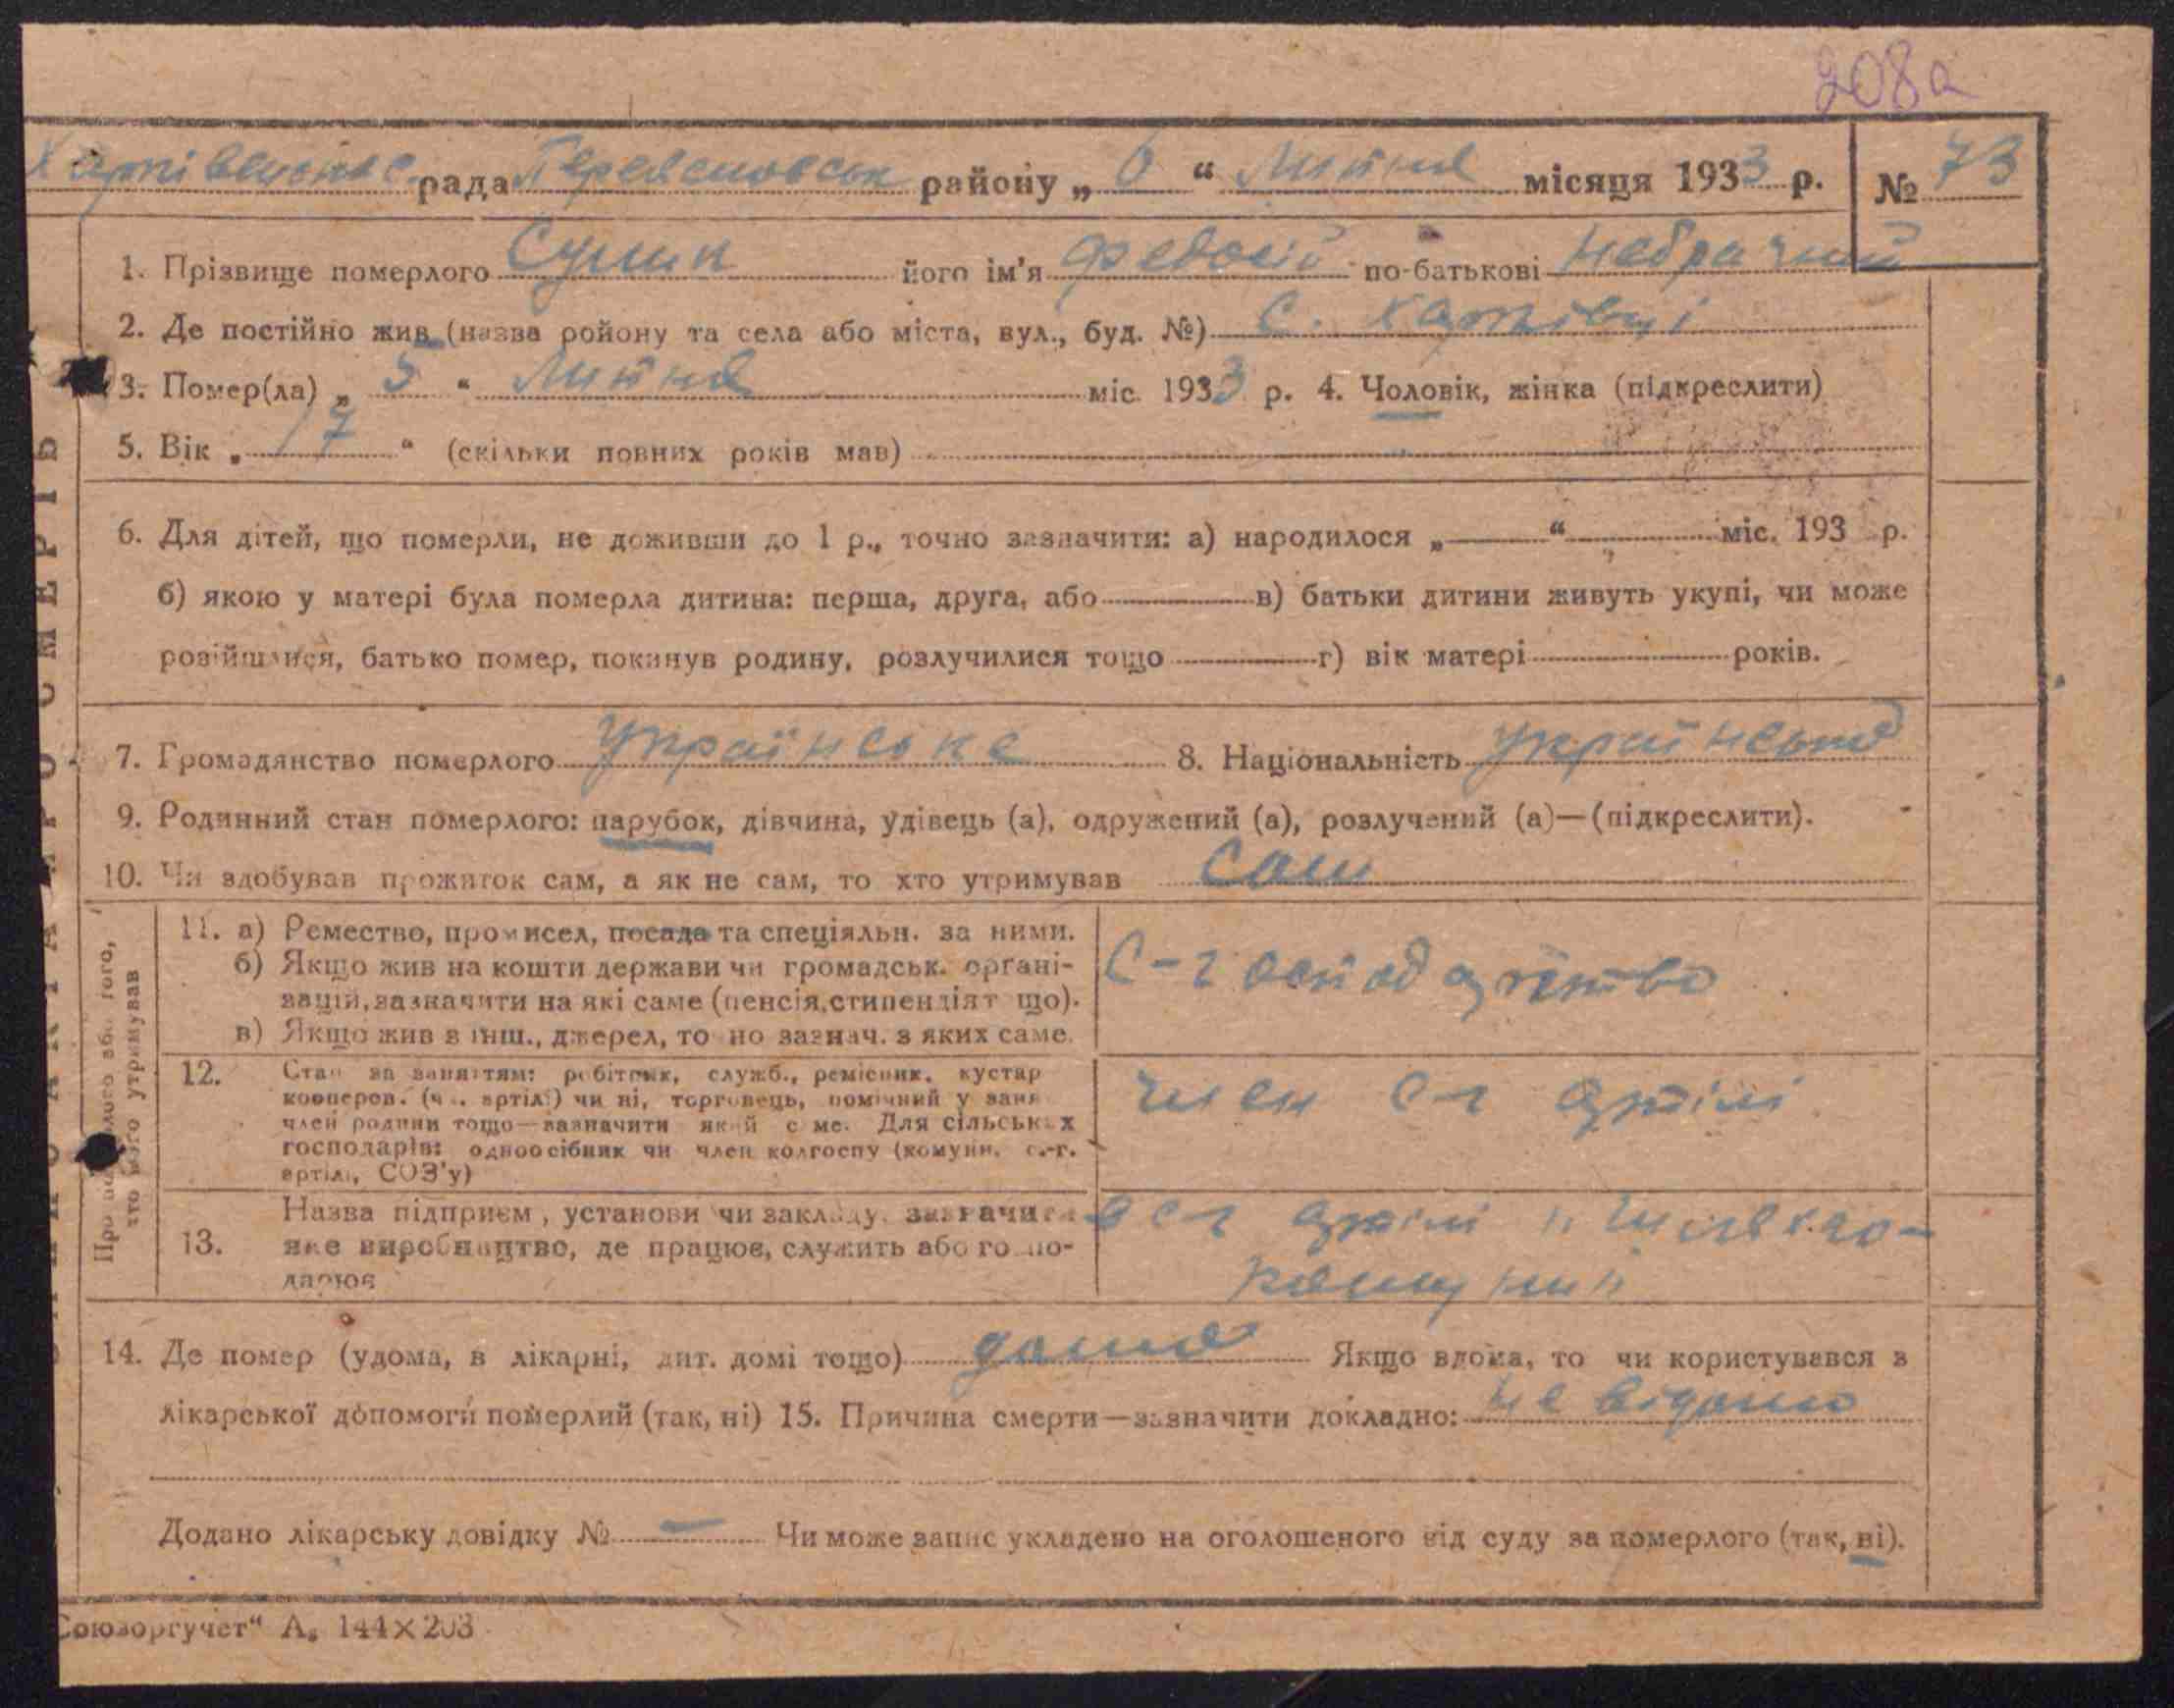 208а
рада району „ 6 “ Липня місяця 1933 р. № 73
1. Прізвище померлого його ім'я Федосій по-батькові Небрачний
2. Де постійно жив (назва ройону та села або міста, вул., буд. №) с. Харківці
3. Помер(ла) „ 5 “ Липня міс. 1933 р. 4. Чоловік, жінка (підкреслити)
5. Вік „ 17 “ (скільки повних років мав)
6. Для дітей, що померли, не доживши до 1 р., точно зазначити: а) народилося „ “ міс. 193 р.
б) якою у матері була померла дитина: перша, друга, або в) батьки дитини живуть укупі, чи може
розійшлися, батько помер, покинув родину, розлучилися тощо г) вік матері років.
7. Громадянство померлого українське 8. Національність
9. Родинний стан померлого: парубок, дівчина, удівець (а), одружений (а), розлучений (а)—(підкреслити).
10. Чи здобував прожиток сам, а як не сам, то хто утримував сам
11. а) Ремество, промисел, посада та спеціяльн. за ними.
б) Якщо жив на кошти держави чи громадськ. органі-
зацій, зазначити на які саме (пенсія, стипендіят що).
в) Якщо жив з інш., джерел, то но зазнач. з яких саме.
С-господарство
12. Стан за заняттям: робітник, служб., ремісник, кустар
кооперов. (ч. артілі) чи ні, торговець, помічний у заня
член родини тощо—зазначити який с ме. Для сільських
господарів: одноосібник чи член колгоспу (комуни, с.-г.
артілі, СОЗ'у)
член с-г артілі
13. Назва підприєм, установи чи закладу, зазначити
яке виробництво, де працює, служить або го по-
дарює
с-г артілі
14. Де помер (удома, в лікарні, дит. домі тощо) дома Якщо вдома, то чи користувався з
лікарської допомоги померлий (так, ні) 15. Причина смерти—зазначити докладно: не відомо
Додано лікарську довідку № — Чи може запис укладено на оголошеного від суду за померлого (так, ні).
Союзоргучет“ А. 144×203